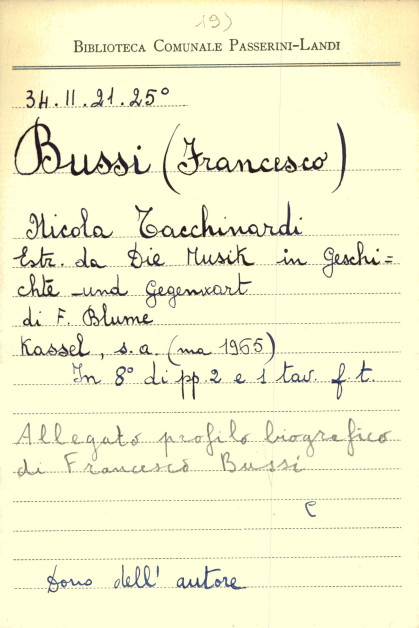 19)
BIBLIOTECA COMUNALE PASSERINI-LANDI
34.II.21.25°
Bussi (Francesco)
Nicola Tacchinardi
Estr. da Die Musik in Geschi=
chte und Gegenwart
di F. Blume
Kassel, s.a. (ma 1965)
In 8° di pp. 2 e 1 tav. f.t.
Allegato profilo biografico
di Francesco Bussi
C
Dono dell'autore